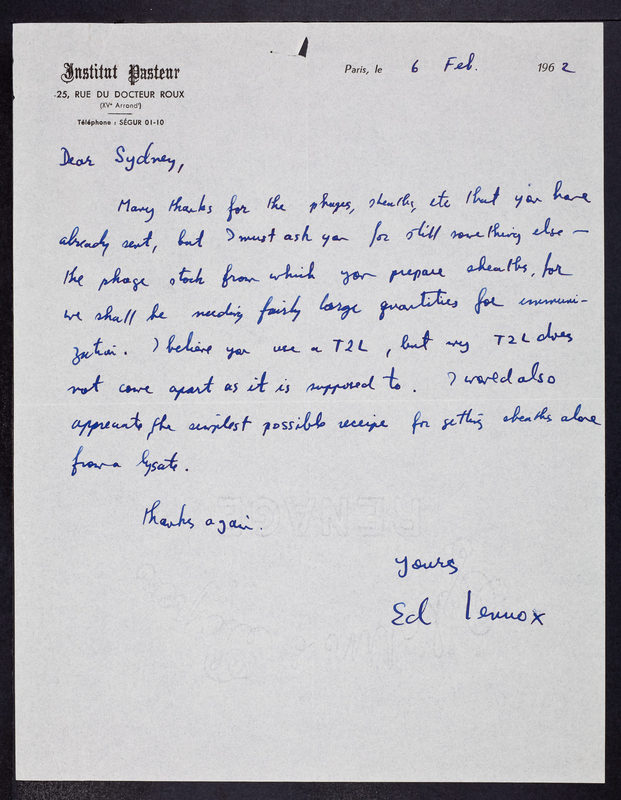 Institut Pasteur
25, RUE DU DOCTEUR ROUX
(XVᵉ Arrondᵗ)
Téléphone : SÉGUR 01-10
Paris, le 6 Feb. 1962
Dear Sydney,
Many thanks for the phages, sheaths, etc that you have
already sent, but I must ask you for still something else —
the phage stock from which you prepare sheaths, for
we shall be needing fairly large quantities for immuni-
zation. I believe you use a T2L, but my T2L does
not come apart as it is supposed to. I would also
appreciate the simplest possible receipe for getting sheaths alone
from a lysate.
Thanks again.
Yours
Ed Lennox